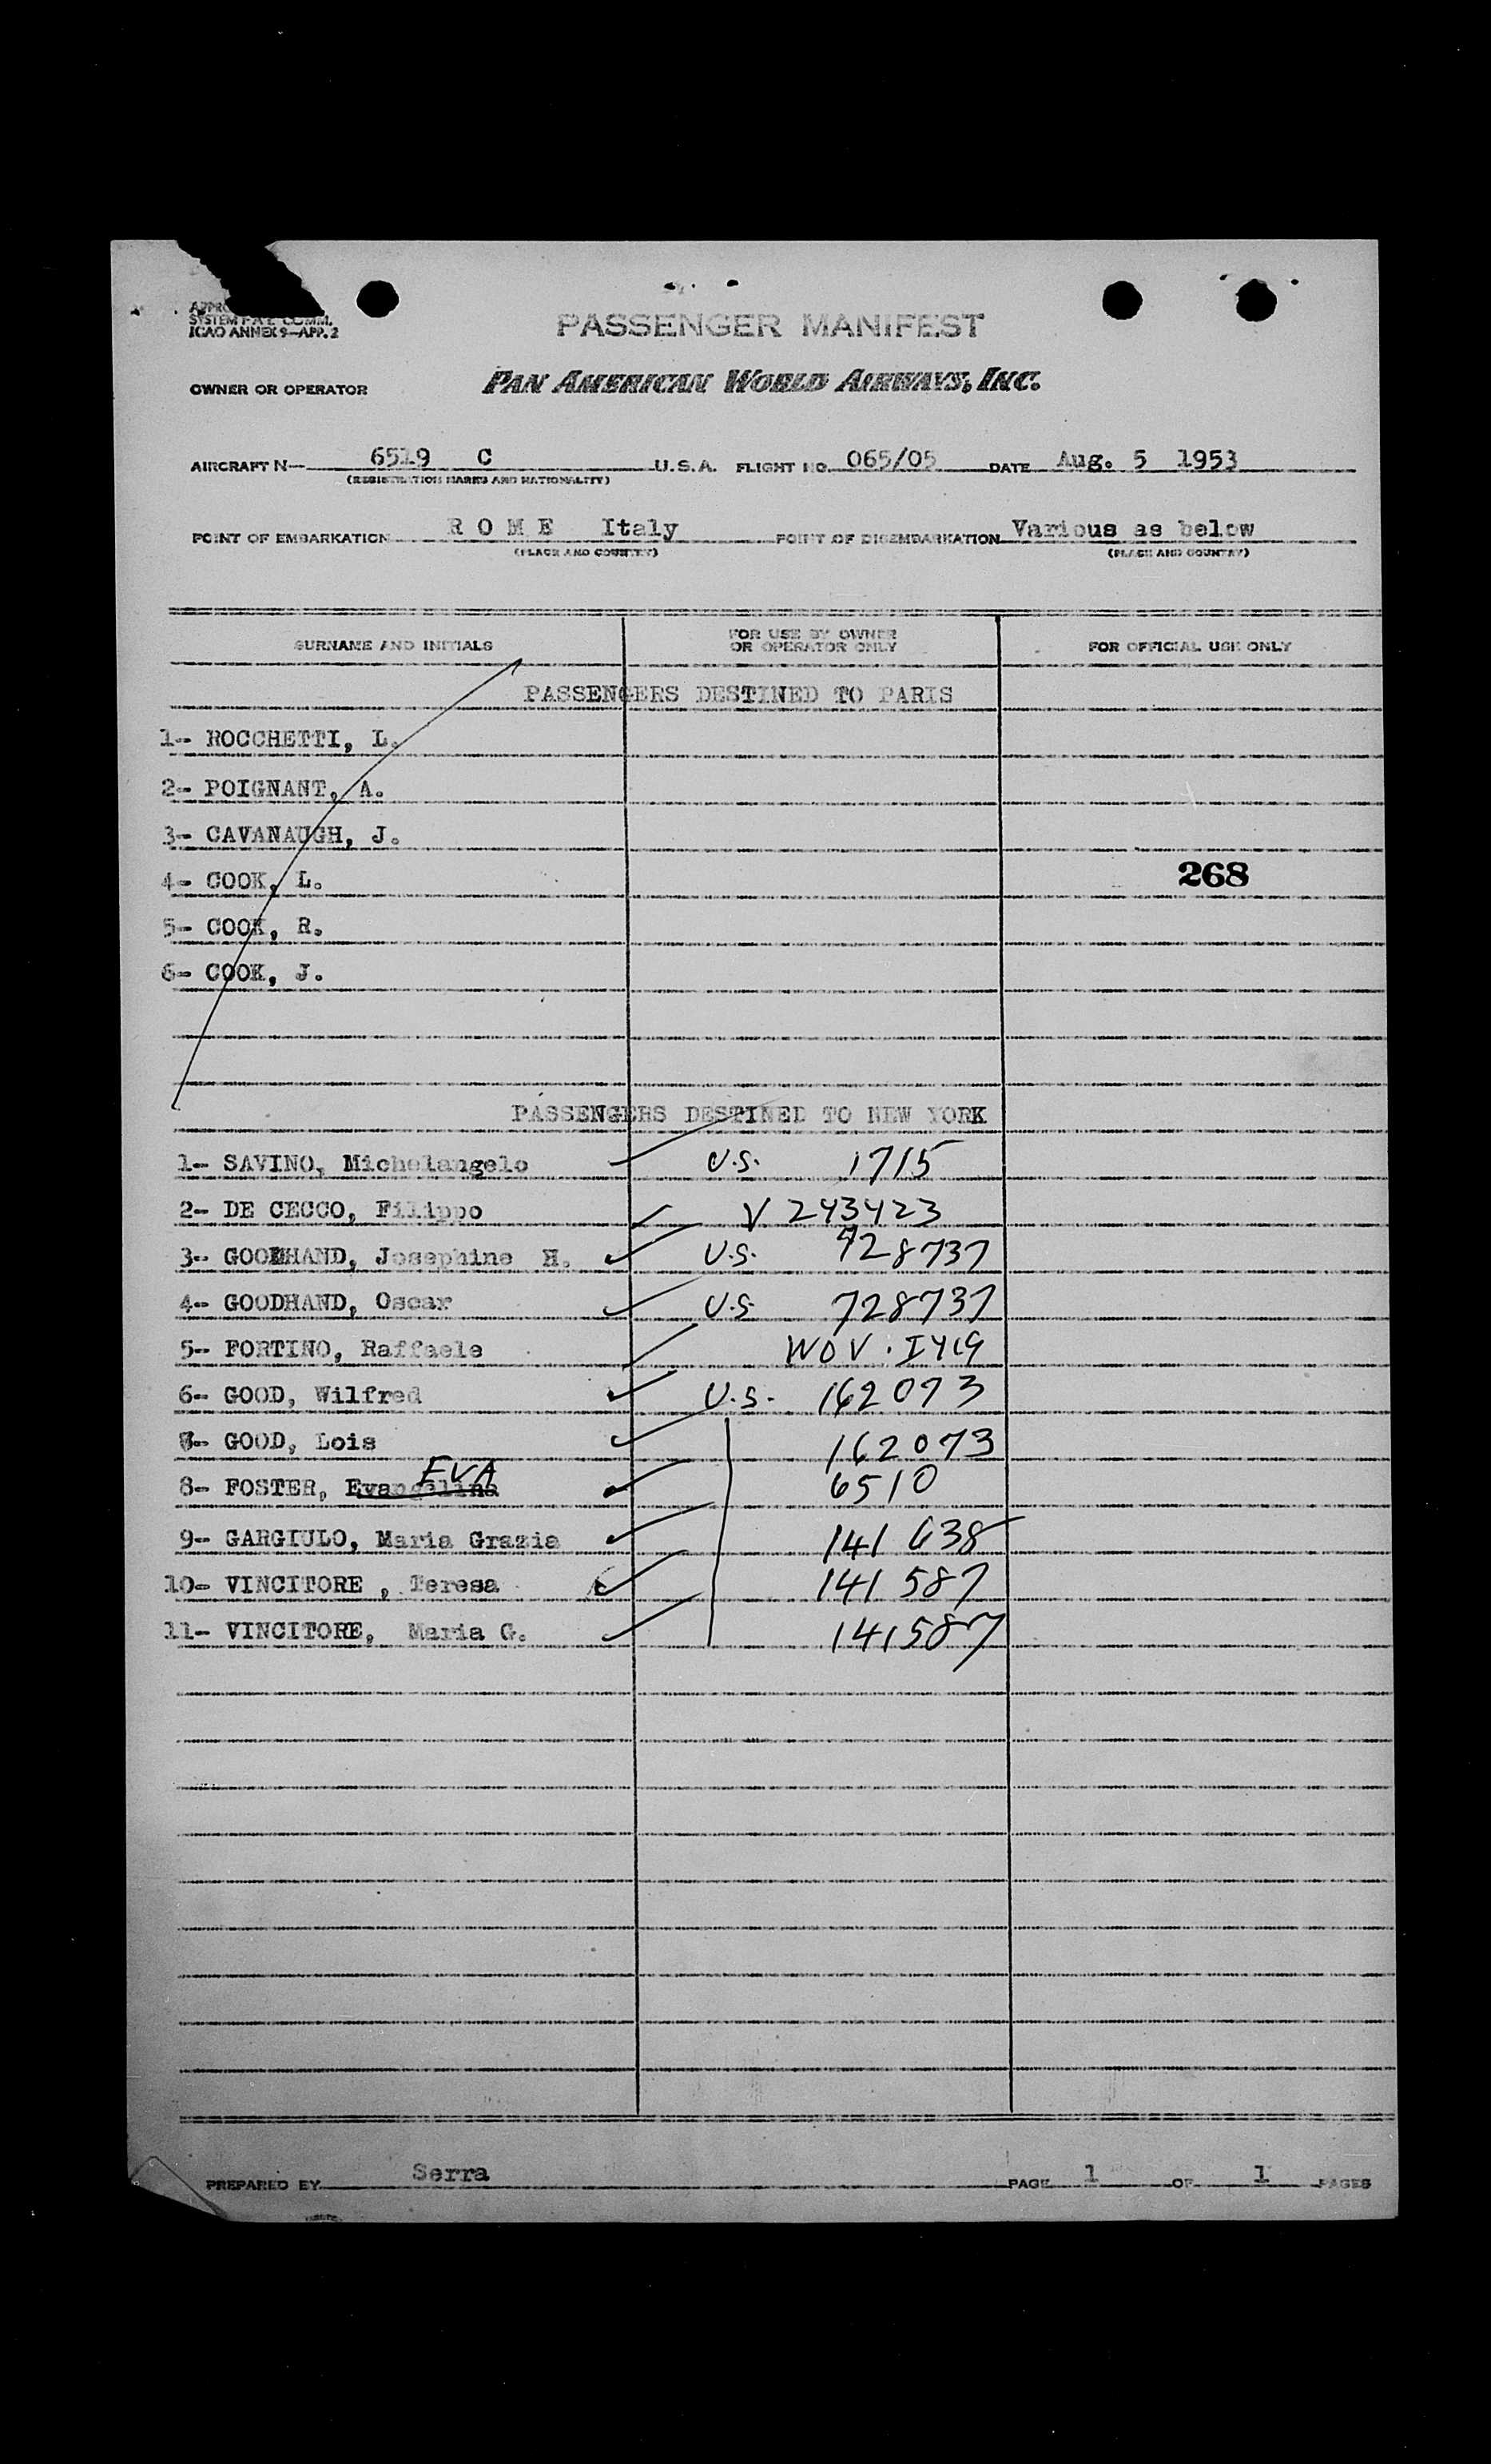 SYSTEM F.A.L. COMM.
ICAO ANNEX 9—APP. 2
PASSENGER MANIFEST
OWNER OR OPERATOR PAN AMERICAN WORLD AIRWAYS, INC.
AIRCRAFT N— 6519 C U.S.A. FLIGHT NO. 065/05 DATE Aug. 5 1953
(REGISTRATION MARKS AND NATIONALITY)
POINT OF EMBARKATION R O M E Italy POINT OF DISEMBARKATION Various as below
(PLACE AND COUNTRY) (PLACE AND COUNTRY)
SURNAME AND INITIALS FOR USE BY OWNER OR OPERATOR ONLY FOR OFFICIAL USE ONLY
PASSENGERS DESTINED TO PARIS
1- ROCCHETTI, L.
2- POIGNANT, A.
3- CAVANAUGH, J.
4- COOK, L. 268
5- COOK, R.
6- COOK, J.
PASSENGERS DESTINED TO NEW YORK
1- SAVINO, Michelangelo U.S. 1715
2- DE CECCO, Filippo V 243423
3- GOODHAND, Josephine H. U.S. 728737
4- GOODHAND, Oscar U.S. 728737
5- FORTINO, Raffaele
6- GOOD, Wilfred U.S. 162073
7- GOOD, Lois 162073
8- FOSTER, Evangelina EVA 6510
9- GARGIULO, Maria Grazia 141 638
10- VINCITORE , Teresa 141 587
11- VINCITORE, Maria G. 141587
PREPARED BY Serra PAGE 1 OF 1 PAGES